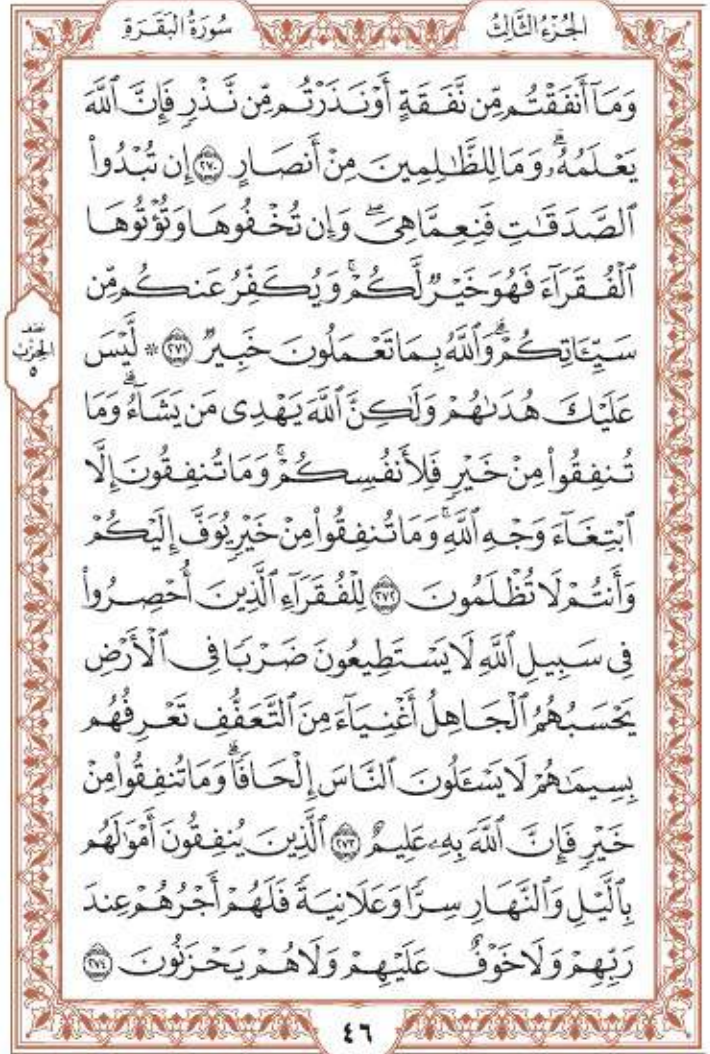 الجُزْءُ الثَّالِثُ
سُورَةُ البَقَرَةِ
وَمَآ أَنفَقْتُم مِّن نَّفَقَةٍ أَوْ نَذَرْتُم مِّن نَّذْرٍ فَإِنَّ ٱللَّهَ
يَعْلَمُهُۥۗ وَمَا لِلظَّـٰلِمِينَ مِنْ أَنصَارٍ ٢٧٠ إِن تُبْدُوا۟
ٱلصَّدَقَـٰتِ فَنِعِمَّا هِىَۖ وَإِن تُخْفُوهَا وَتُؤْتُوهَا
ٱلْفُقَرَآءَ فَهُوَ خَيْرٌ لَّكُمْۚ وَيُكَفِّرُ عَنكُم مِّن
سَيِّـَٔاتِكُمْۗ وَٱللَّهُ بِمَا تَعْمَلُونَ خَبِيرٌ ٢٧١ ۞ لَّيْسَ
عَلَيْكَ هُدَىٰهُمْ وَلَـٰكِنَّ ٱللَّهَ يَهْدِى مَن يَشَآءُۗ وَمَا
تُنفِقُوا۟ مِنْ خَيْرٍ فَلِأَنفُسِكُمْۚ وَمَا تُنفِقُونَ إِلَّا
ٱبْتِغَآءَ وَجْهِ ٱللَّهِۚ وَمَا تُنفِقُوا۟ مِنْ خَيْرٍ يُوَفَّ إِلَيْكُمْ
وَأَنتُمْ لَا تُظْلَمُونَ ٢٧٢ لِلْفُقَرَآءِ ٱلَّذِينَ أُحْصِرُوا۟
فِى سَبِيلِ ٱللَّهِ لَا يَسْتَطِيعُونَ ضَرْبًا فِى ٱلْأَرْضِ
يَحْسَبُهُمُ ٱلْجَاهِلُ أَغْنِيَآءَ مِنَ ٱلتَّعَفُّفِ تَعْرِفُهُم
بِسِيمَـٰهُمْ لَا يَسْـَٔلُونَ ٱلنَّاسَ إِلْحَافًاۗ وَمَا تُنفِقُوا۟ مِنْ
خَيْرٍ فَإِنَّ ٱللَّهَ بِهِۦ عَلِيمٌ ٢٧٣ ٱلَّذِينَ يُنفِقُونَ أَمْوَٰلَهُم
بِٱلَّيْلِ وَٱلنَّهَارِ سِرًّا وَعَلَانِيَةً فَلَهُمْ أَجْرُهُمْ عِندَ
رَبِّهِمْ وَلَا خَوْفٌ عَلَيْهِمْ وَلَا هُمْ يَحْزَنُونَ ٢٧٤
نصف
الحِزْب
٥
٤٦